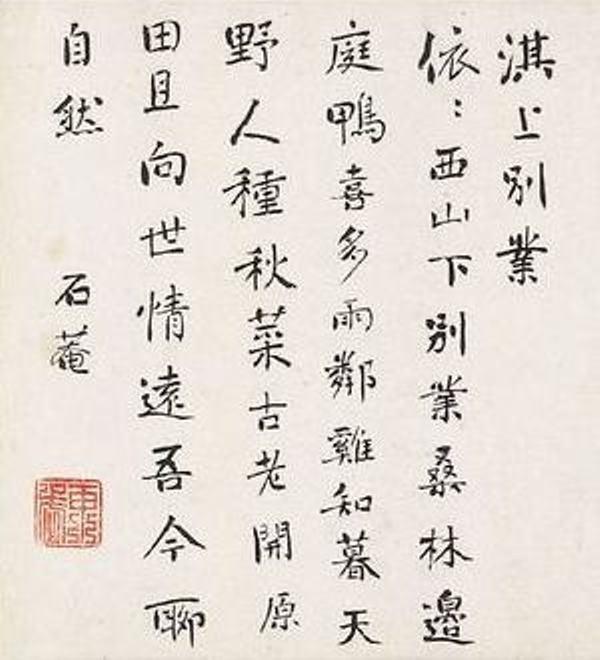 淇上別業
依:西山下別業桑林邊
庭鴨喜多雨鄰雞知暮天
野人種秋菜古老開原
田且向世情遠吾今聊
自然
石菴